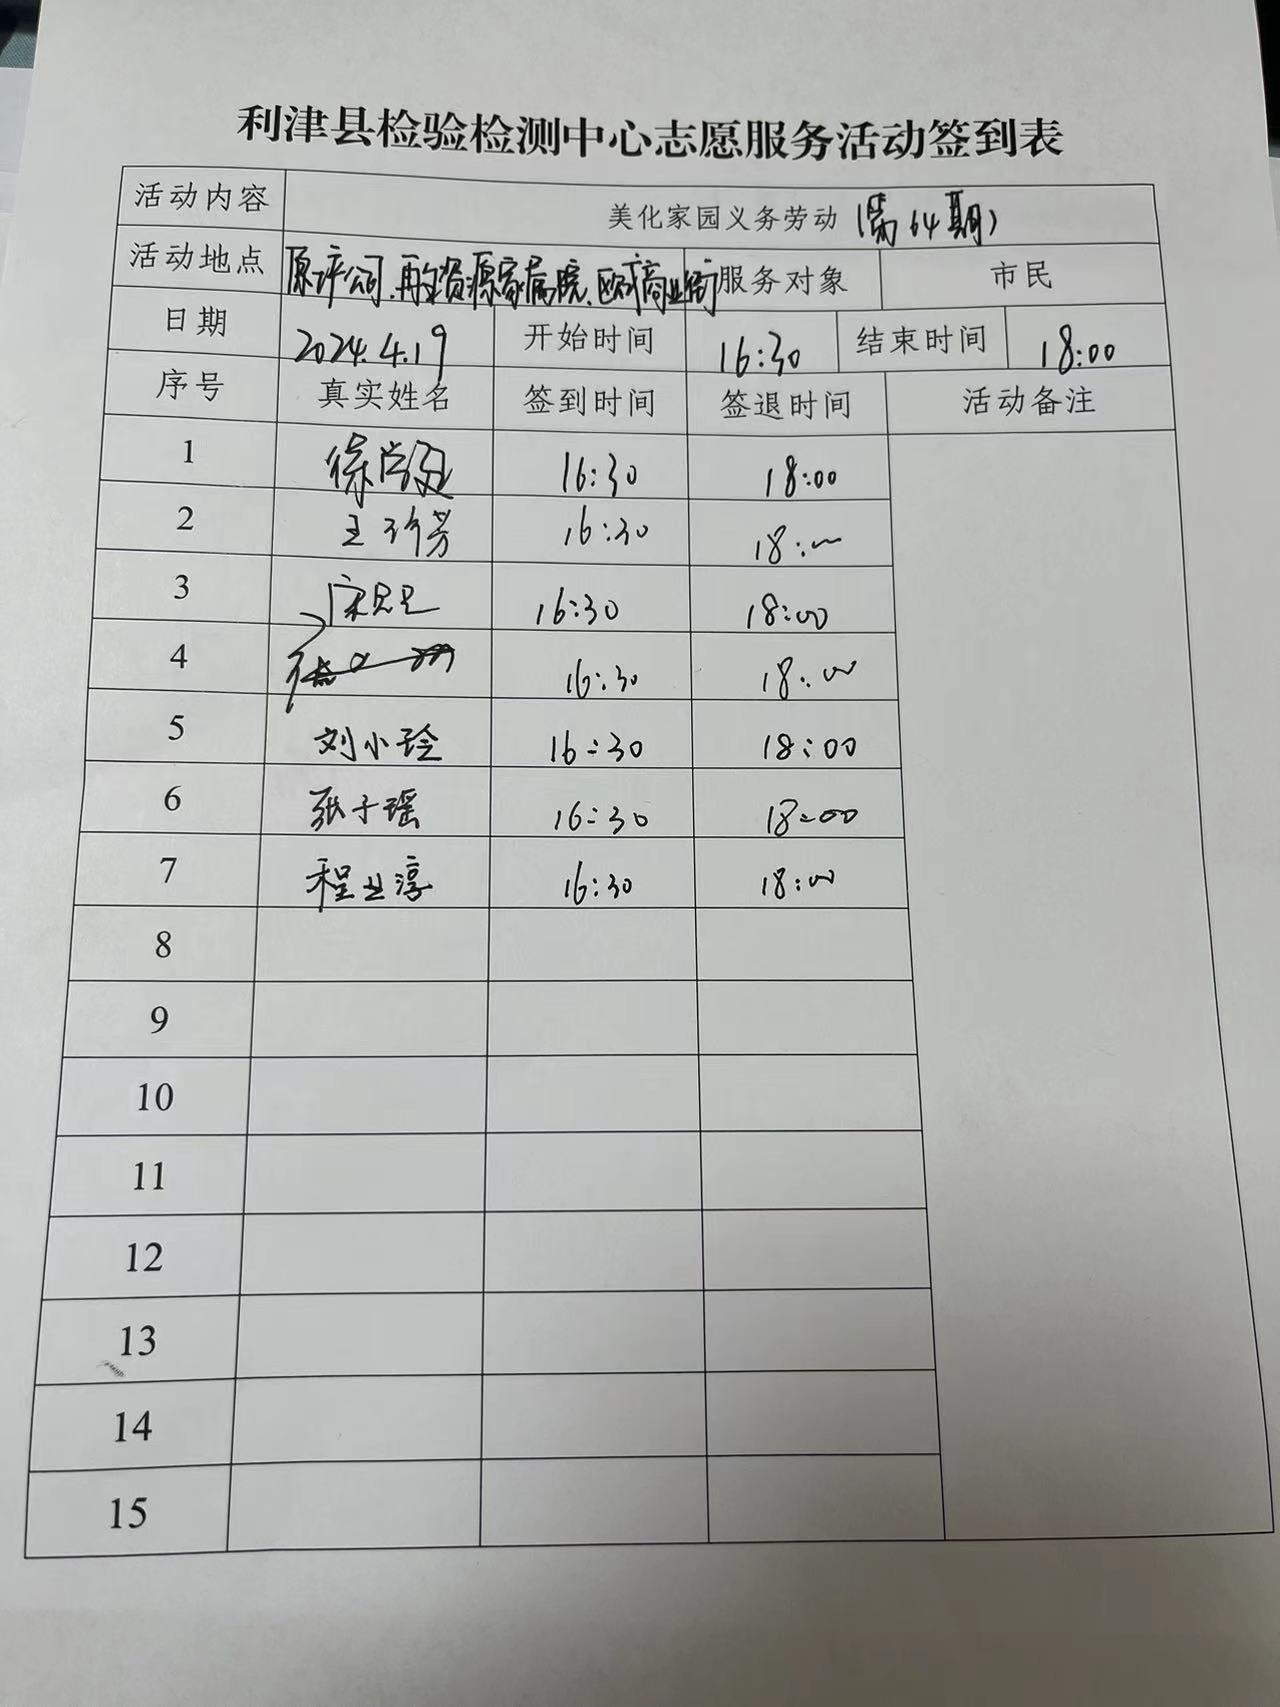 利津县检验检测中心志愿服务活动签到表
活动内容 美化家园义务劳动（第64期）
活动地点 公司、再生资源家属院、欧 商业街 服务对象 市民
日期 2024.4.19 开始时间 16:30 结束时间 18:00
序号 真实姓名 签到时间 签退时间 活动备注
1 徐 16:30 18:00
2 王 芳 16:30 18:00
3 16:30 18:00
4 16:30 18:00
5 刘小玲 16:30 18:00
6 张子瑶 16:30 18:00
7 程业淳 16:30 18:00
8
9
10
11
12
13
14
15